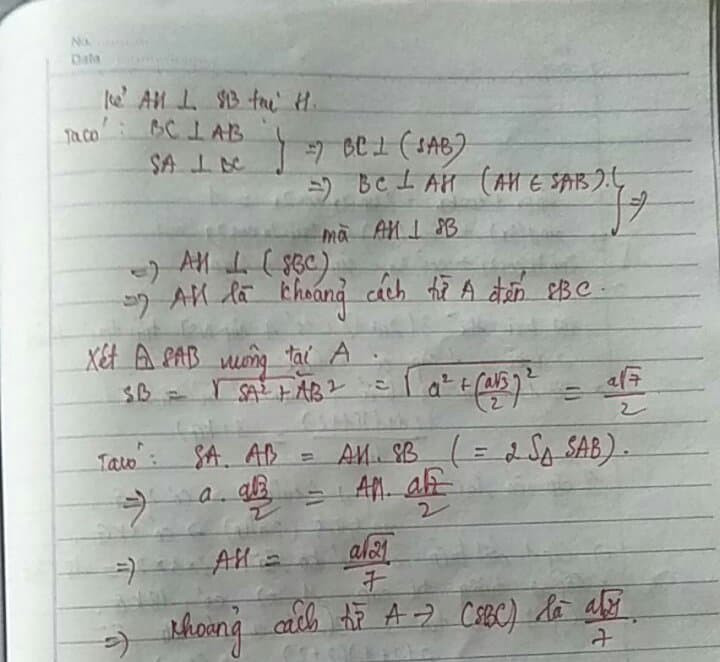 No.
Date
Kẻ AH ⊥ SB tại H.
Ta có: BC ⊥ AB
SA ⊥ BC } => BC ⊥ (SAB)
=> BC ⊥ AH (AH ∈ SAB). } =>
mà AH ⊥ SB
=> AH ⊥ (SBC)
=> AH là khoảng cách từ A đến SBC.
Xét △ SAB vuông tại A.
SB = √(SA² + AB²) = √(a² + (a√3/2)²) = a√7/2
Ta có: SA. AB = AH. SB (= 2 S△ SAB).
=> a. a√3/2 = AH. a√7/2
=> AH = a√21/7
=> khoảng cách từ A -> (SBC) là a√21/7.